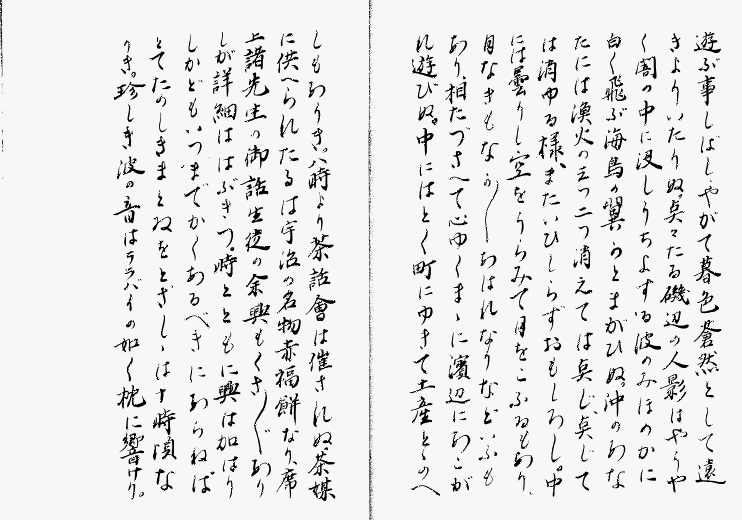 遊ぶ事しばし、やがて暮色蒼然として遠
きよりいたりぬ。炅々たる磯辺の人影はやうや
く闇の中に没しうちよする波のみほのかに
白く飛ぶ海鳥の翼かとまがひぬ。沖のあな
たには漁火の三つ二つ消えては炅じ、炅じて
は消ゆる様、またいひしらずおもしろし。中
には曇りし空をうらみて月をこふるもあり、
月なきもなか〳〵あはれなりなどいふも
あり、相たづさへて心ゆくまゝに濱辺にあこが
れ遊びぬ。中にはとく町にゆきて土産とゝのへ
しもありき。八時より茶話會は催されぬ。茶媒
に供へられたるは宇治の名物赤福餅なり。席
上諸先生の御話生徒の余興もくさ〴〵あり
しが詳細ははぶきつ。時とともに興は加はり
しかどもいつまでかくあるべきにあらねば
とてたのしきまとゐをとざしゝは十時頃な
りき。珍しき波の音はララバイの如く枕に響けり。